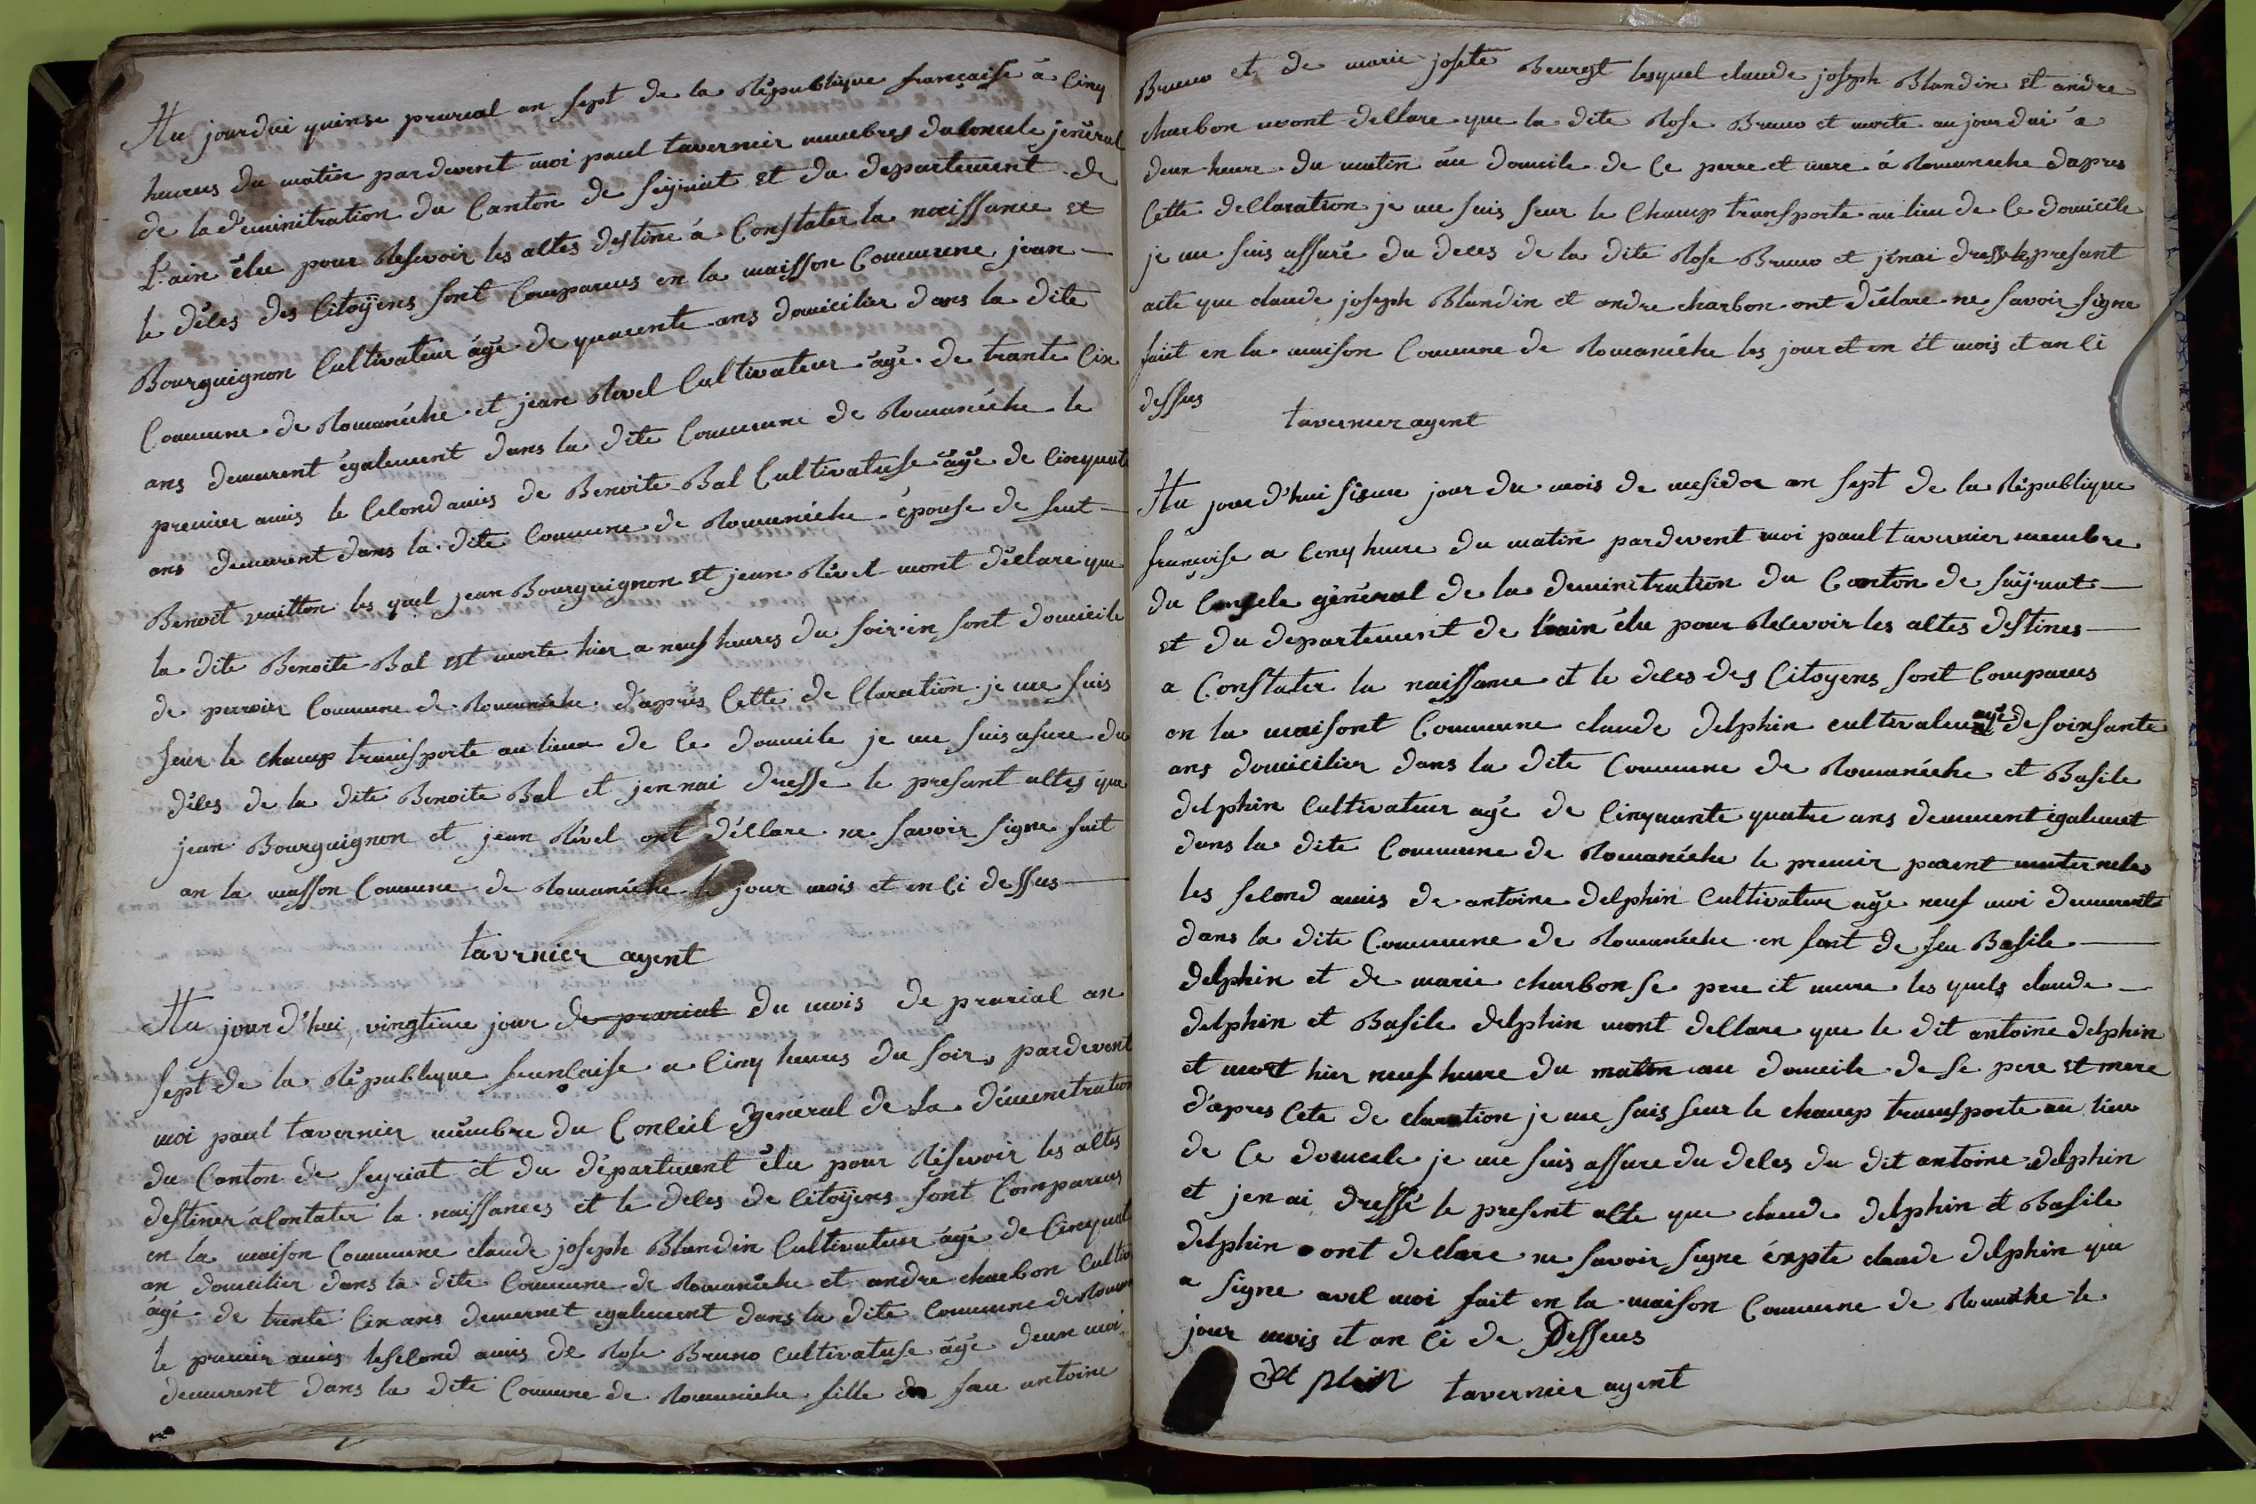 Au jourdui quinse prureal an sept de la République française á Cinq
heures du matin pardevent moi paul tavernier membres du Concele jenéral
de la déminitration du Canton de seÿriat et du departement de
l'ain élu pour Resevoir les altes destine á Constater la naissance et
le déces des Citoÿens sont Comparus en la maisson Commune jean
Bourguignon Cultivateur âgé de quarente ans domicilier dans la dite
Commune de Romanéche et jean Revel Cultivateur âgé de trante Cin
ans demurent également dans la dite Commune de Romanéche le
premier amis le Celond amis de Benoite Bal Cultivatuse âgé de Cinquate
ans demurent dans la dite Commune de Romanéche épouse de feut
Benoit vuitton les quel jean Bourguignon et jean Révet mont déclare que
la dite Benoite Bal est morte hier a neuf heures du soir in sont domicile
de Commune de Romanéche d'aprés Cette de Claration je me suis
seur le champ transporte au lieux de Ce domicile je me suis asure du
déces de la dite Benoite Bal et jen nai dresse le presant altes que
jean Bourguignon et jean Révél ont déclare ne savoir signe fait
an la masson Commune de Romanéche le jour mois et en Ci dessus
tavrnier agent
Au jour d'hui vingtieme jour de prarial du mois de prarial an
sept de la République francaise a Cinq heures du soir pardevent
moi paul tavernier membre du Conceil general de La déminetration
du Canton de seyriat et du départiment élu pour Résevoir les altes
destiner á Contater la naissances et le deces de Citoÿens sont Comparus
en la maison Commune claude joseph Blandin Cultivateur âgé de Cinquat
an domicilier dans la dite Commune de Romanéche et andre charbon Cultiv
âgé de trente Cin ans demernet egalement dans la dite Commune de Roman
le primier amis le selond amis de Rose Bruno cultivatuse âgé deux moi
demurent dans la dite Commune de Romaniche fille de feu antoine
Bruno et de marie josete Beurgt lesquel claude joseph Blandin et andre
charbon mont dellare que la dite Rose Bruno et morte au jourdui a
deux heure du matin áu domicile de Ce perre et mere á Romaneche dapres
Cette declaration je me suis seur le Champ transporte au lieu de Ce domicile
je me suis assuré du deces de la dite Rose Bruno et j'enai dresse le presant
acte que claude joseph Blandin et andre charbon ont déclare ne savoir signe
fait en la maison Commune de Romanéche les jour et en ét mois et an Ci
dessus
tavernier agent
Au jour d'hui sisieme jour du mois de mesidor an sept de la République
françoise a Cinq heure du matin pardevent moi paul tavernier membre
du Consele général de la deminitration du Canton de saÿriat
et du departement de l'ain élu pour Recevoir les altes destines
a Constater la naissance et le deces des Citoyens sont Comparus
en la maisont Commune claude delphin cultivateur agé de soinsante
ans domicilier dans la dite Commune de Romanéche et Basile
delphin Cultivateur agé de Cinquante quatre ans demurent égalemet
dans la dite Commune de Romanéche le premier parent maternele
les selond amis de antoine delphin Cultivateur agé neuf moi demurente
dans la dite Commune de Romanéche en fant de feu Basile
delphin et de marie charbon se pere et mere les quels claude
delphin et Basile delphin mont dellare que le dit antoine delphin
et mort hier neuf heure du matin au domicile de se pere et mere
d'apres Cete de claration je me suis seur le champ transporte au lieu
de Ce domicele je me suis assure du deles du dit antoine delphin
et jen ai dressé le present alte que claude delphin et Basile
delphin ont declare ne savoir signe éxpte claude delphin qui
a signe avel moi fait en la maison Commune de Romaneche le
jour mois et an Ci de Desseus
tavernier agent